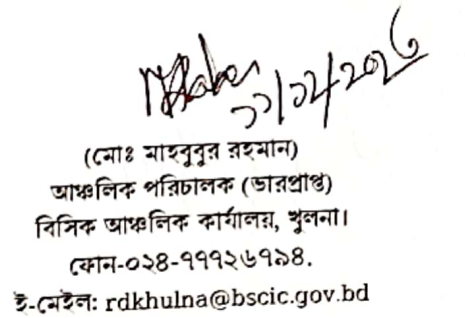 (মোঃ মাহবুবুর রহমান)
আঞ্চলিক পরিচালক (ভারপ্রাপ্ত)
বিসিক আঞ্চলিক কার্যালয়, খুলনা।
ফোন-০২৪-৭৭৭২৬৭৯৪.
ই-মেইল: rdkhulna@bscic.gov.bd